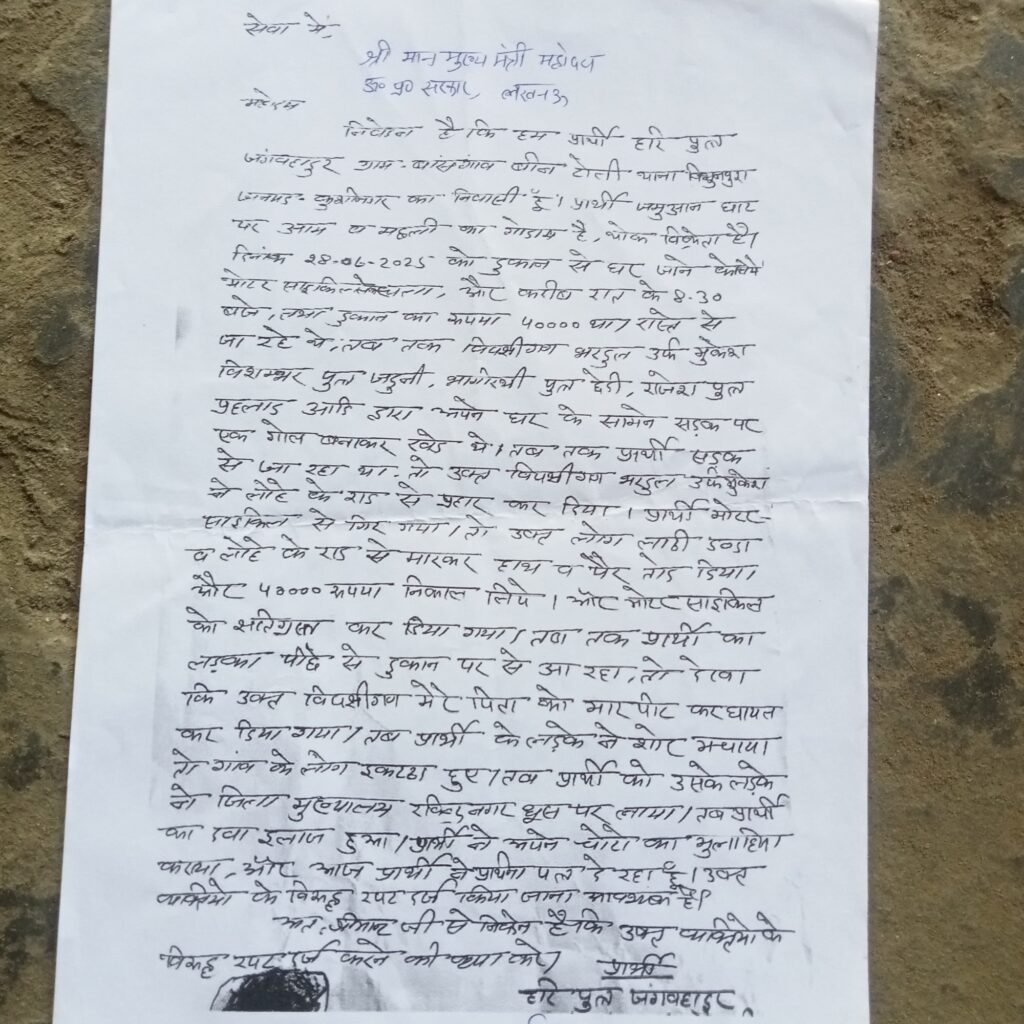 सेवा में,
श्री मान मुख्य मंत्री महोदय
उ० प्र० सरकार, लखनऊ
महोदय
निवेदन है कि हम प्रार्थी हरि पुत्र
जंगबहादुर ग्राम- बांसगांव बीन टोली थाना विशुनपुरा
जनपद- कुशीनगर का निवासी हूँ। प्रार्थी जमुआन घाट
पर आम व मछली का गोदाम है, थोक विक्रेता है।
दिनांक 28-06-2025 को दुकान से घर जाने के लिये
मोटर साइकिल से चला, और करीब रात के 8-30
बजे, तथा दुकान का रुपया ५०००० था। रास्ते से
जा रहे थे, तब तक विपक्षीगण भरदुल उर्फ मुकेश
विशम्भर पुत्र जदुनी, भागीरथी पुत्र छेदी, राजेश पुत्र
प्रहलाद आदि द्वारा अपने घर के सामने सड़क पर
एक गोल बनाकर खड़े थे। तब तक प्रार्थी सड़क
से जा रहा था- तो उक्त विपक्षीगण भरदुल उर्फ मुकेश
ने लोहे के राड से प्रहार कर दिया। प्रार्थी मोटर-
साइकिल से गिर गया। तो उक्त लोग लाठी डण्डा
व लोहे के राड से मारकर हाथ व पैर तोड दिया।
और ५०००० रुपया निकाल लिये। और मोटर साइकिल
को क्षतिग्रस्त कर दिया गया। तब तक प्रार्थी का
लड़का पीछे से दुकान पर से आ रहा, तो देखा
कि उक्त विपक्षीगण मेरे पिता को मारपीट कर घायल
कर दिया गया। तब प्रार्थी के लड़के ने शोर मचाया
तो गांव के लोग इकट्ठा हुए। तब प्रार्थी को उसके लड़के
ने जिला मुख्यालय रविन्द्रनगर धूस पर लाया। तब प्रार्थी
का दवा इलाज हुआ। प्रार्थी ने अपने चोटो का मुलाहिजा
कराया, और आज प्रार्थी ने प्रार्थना पत्र दे रहा हूँ। उक्त
व्यक्तियो के विरूद्ध रपट दर्ज किया जाना आवश्यक है।
अतः श्रीमान जी से निवेदन है कि उक्त व्यक्तियो के
विरूद्ध रपट दर्ज करने की कृपा करे।
प्रार्थी
हरि पुत्र जंगबहादुर